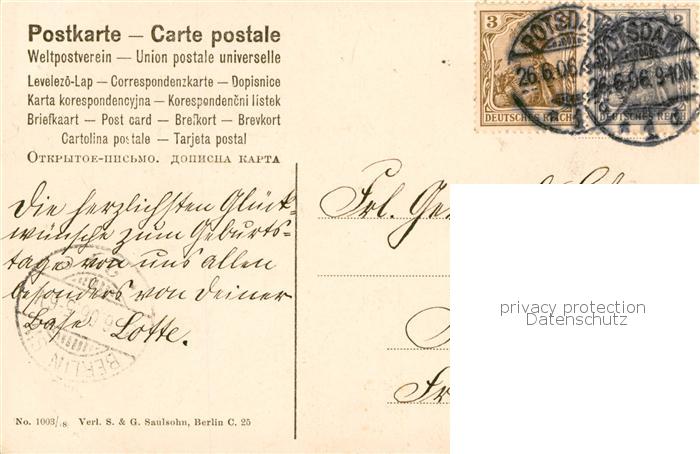 Postkarte — Carte postale
Weltpostverein — Union postale universelle
Levelező-Lap — Correspondenzkarte — Dopisnice
Karta korespondencyjna — Korespondenční lístek
Briefkaart — Post card — Brefkort — Brevkort
Cartolina postale — Tarjeta postal
Открытое-письмо. дописна карта
3
DEUTSCHES REICH
2
DEUTSCHES REICH
POTSDAM
26.6.06
1
POTSDAM
26.6.06. 9-10V.
1
Die herzlichsten Glück-
wünsche zum Geburts-
tage von uns allen
besonders von Deiner
Base Lotte.
BERLIN
Frl.
privacy protection
Datenschutz
No. 1003/18 Verl. S. & G. Saulsohn, Berlin C. 25